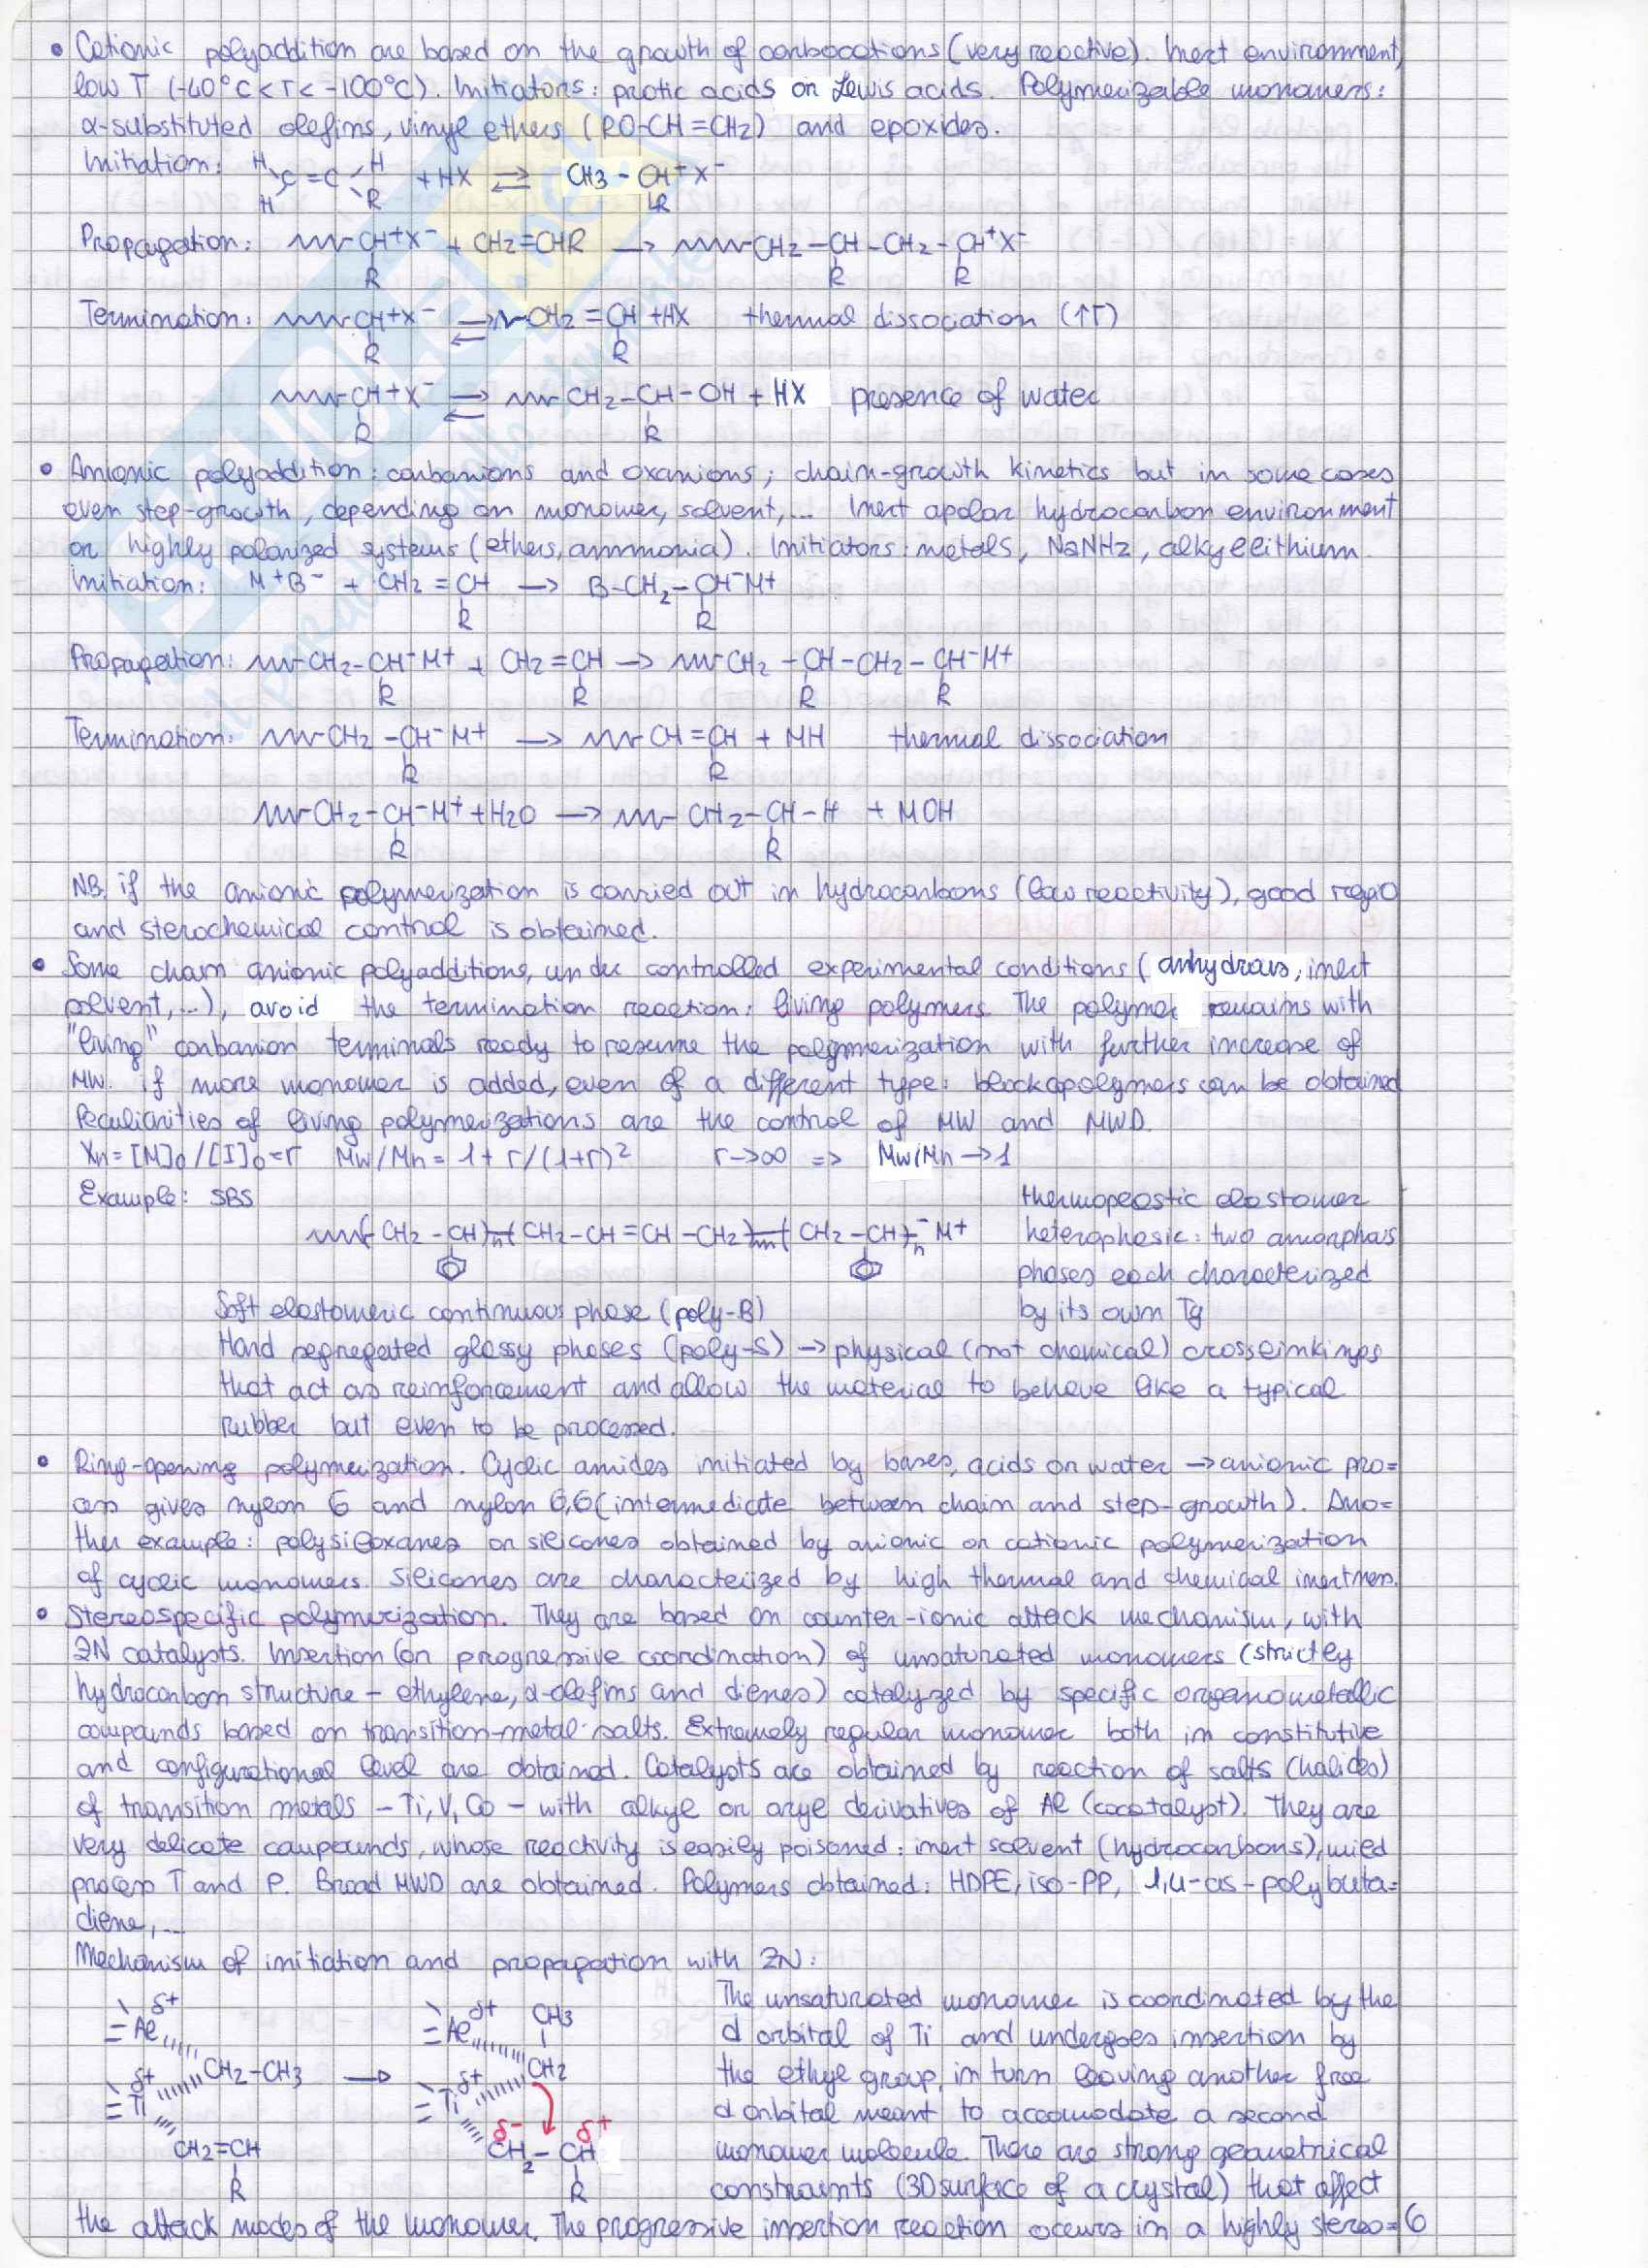 • Cationic polyaddition are based on the growth of carbocations (very reactive). Inert environment,
low T (-40°C<T<-100°C). Initiators: protic acids or Lewis acids. Polymerizable monomers:
α-substituted olefins, vinyl ethers (RO-CH=CH2) and epoxides.
Initiation: H H C=C H R + HX ⇌ CH3 - CH+X-
R
Propagation: CH+X- + CH2=CHR → CH2 - CH - CH2 - CH+X-
R R R
Termination: CH+X- ⇌ CH2 = CH + HX thermal dissociation (↑T)
R R
CH+X- ⇌ CH2 - CH - OH + HX presence of water
R R
• Anionic polyaddition: carbanions and oxanions; chain-growth kinetics but in some cases
even step-growth, depending on monomer, solvent,... Inert apolar hydrocarbon environment
or highly polarized systems (ethers, ammonia). Initiators: metals, NaNH2, alkyllithium.
Initiation: M+B- + CH2 = CH → B-CH2 - CH-M+
R R
Propagation: CH2 - CH-M+ + CH2 = CH → CH2 - CH - CH2 - CH-M+
R R R R
Termination: CH2 - CH-M+ → CH = CH + MH thermal dissociation
R R
CH2 - CH-M+ + H2O → CH2 - CH - H + MOH
R R
NB. if the anionic polymerization is carried out in hydrocarbons (low reactivity), good regio
and sterochemical control is obtained.
• Some chain anionic polyadditions, under controlled experimental conditions (anhydrous, inert
solvent,...), avoid the termination reaction: living polymers. The polymer remains with
"living" carbanion terminals ready to resume the polymerization with further increase of
MW. if more monomer is added, even of a different type: block copolymers can be obtained
Peculiarities of living polymerizations are the control of MW and MWD.
Xn = [M]0/[I]0 = r Mw/Mn = 1 + r/(1+r)2 r→∞ => Mw/Mn → 1
Example: SBS thermoplastic elastomer
( CH2 - CH )n ( CH2 - CH = CH - CH2 )m ( CH2 - CH )n - M+ heterophasic: two amorphous
phases each characterized
Soft elastomeric continuous phase (poly-B) by its own Tg
Hard segregated glassy phases (poly-S) → physical (not chemical) crosslinkings
that act as reinforcement and allow the material to behave like a typical
rubber but even to be processed.
• Ring-opening polymerization. Cyclic amides initiated by bases, acids or water → anionic pro=
cess gives nylon 6 and nylon 6,6 (intermediate between chain and step-growth). Ano=
ther example: polysiloxanes or silicones obtained by anionic or cationic polymerization
of cyclic monomers. Silicones are characterized by high thermal and chemical inertness.
• Stereospecific polymerization. They are based on counter-ionic attack mechanism, with
ZN catalysts. Insertion (or progressive coordination) of unsaturated monomers (strictly
hydrocarbon structure - ethylene, α-olefins and dienes) catalyzed by specific organometallic
compounds based on transition-metal salts. Extremely regular monomer both in constitutive
and configurational level are obtained. Catalysts are obtained by reaction of salts (halides)
of transition metals - Ti, V, Co - with alkyl or aryl derivatives of Al (cocatalyst). They are
very delicate compounds, whose reactivity is easily poisoned: inert solvent (hydrocarbons), mild
process T and P. Broad MWD are obtained. Polymers obtained: HDPE, iso-PP, 1,4-cis-polybuta=
diene,...
Mechanism of initiation and propagation with ZN:
δ+ Al δ+ Ti CH2-CH3 CH2=CH R → δ+ Al δ+ Ti CH3 CH2 δ- CH2 - CH δ+ R
The unsaturated monomer is coordinated by the
d orbital of Ti and undergoes insertion by
the ethyl group, in turn leaving another free
d orbital meant to accomodate a second
monomer molecule. There are strong geometrical
constraints (3D surface of a crystal) that affect
the attack modes of the monomer. The progressive insertion reaction occurs in a highly stereo= 6